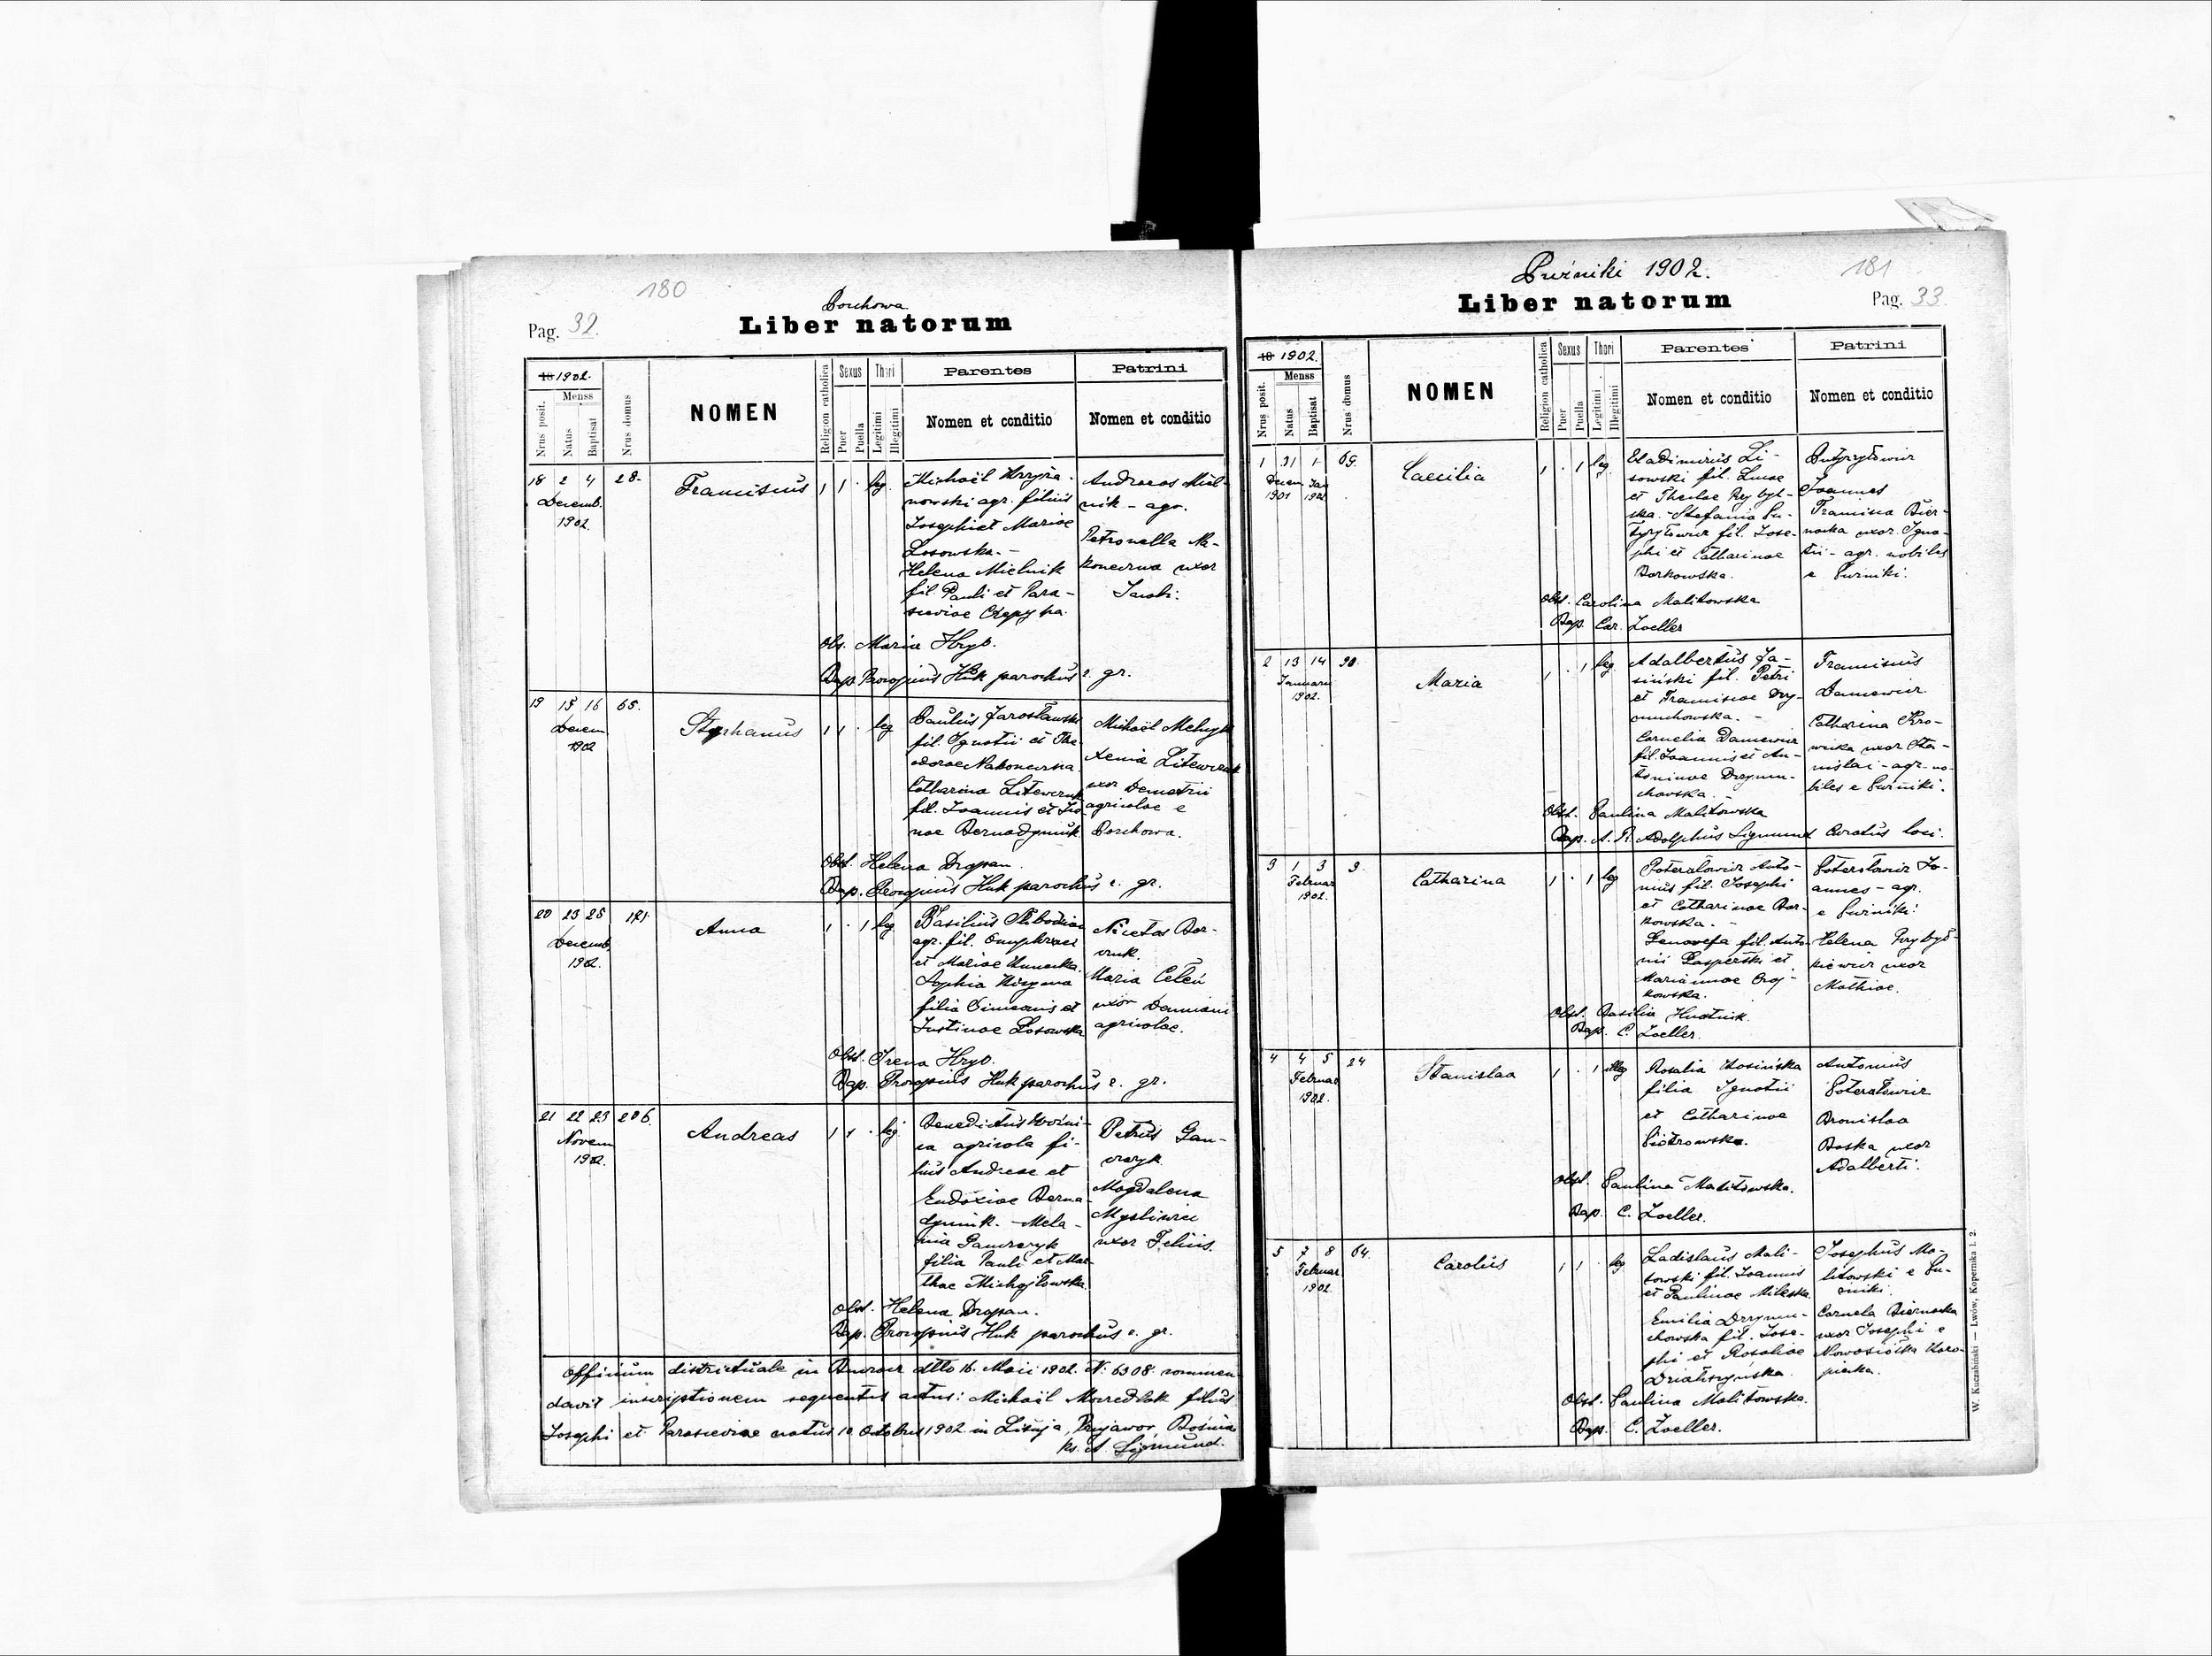 180
Porchowa
Pag. 32.
Liber natorum
18 1902.
Menss
Nrus posit.
Natus
Baptisat
Nrus domus
NOMEN
Religion catholica
Sexus
Puer
Puella
Thori
Legitimi
Illegitimi
Parentes
Nomen et conditio
Patrini
Nomen et conditio
18 2 4 28.
Decemb.
1902.
Franciscus
1 1 . leg.
Michaël
nowski agr. filius
Josephi et Mariae
Losowska. -
Helena Mielnik
fil. Pauli et Para-
sceviae
Andreas Miel-
nik - agr.
Petronella Na-
koneczna uxor
Jacobi.
Obs. Maria Hryb.
Bap. Procopius Huk parochus r. gr.
19 15 16 65.
Decem
1902
Stephanus
1 1 . leg
Paulus Jarosławski
fil. Ignatii et The-
odorae Nakoneczna.
Catharina Litewczuk
fil. Joannis et
nae Bernadzniuk.
Michaël Melnyk
Xenia Litewczuk
uxor Demetrii
agricolae e
Porchowa.
Obst. Helena Drapan.
Bap. Procopius Huk parochus r. gr.
20 23 25 171.
Decemb.
1902.
Anna
1 . 1 leg.
Basilius
agr. fil. Onuphrii
et Mariae
Sophia
filia Simeonis et
Justinae Losowska
Nicetas Bor-
Maria Celeń
uxor Damiani
agricolae.
Obst. Irena Hryb.
Bap. Procopius Huk parochus r. gr.
21 22 23 206.
Novem
1902.
Andreas
1 1 . leg.
Benedictus Woźni-
ca agricola fi-
lius Andreae et
Eudoxiae Berna-
dzniuk. - Mela-
nia Gawryczyk
filia Pauli et Mar-
thae Michajłowska.
Petrus Gaw-
Magdalena
Mysliwiec
uxor Felicis.
Obst. Helena Drapan.
Bap. Procopius Huk parochus r. gr.
Officium districtuale in Buczacz dtto 16. Maii 1902. N: 6308 commen
davit inscriptionem sequentis actus: Michaël filius
Josephi et Parasceviae natus 10 Octobris 1902 in Prnjavor, Bośnia
ks. A. Sigmund.
Puźniki 1902.
181
Liber natorum
Pag. 33.
18 1902.
Menss
Nrus posit.
Natus
Baptisat
Nrus domus
NOMEN
Religion catholica
Sexus
Puer
Puella
Thori
Legitimi
Illegitimi
Parentes
Nomen et conditio
Patrini
Nomen et conditio
1 31 1 69.
Decem Jan
1901 1902
Caecilia
1 . 1 leg.
Vladimirus Li-
sowski fil. Lucae
et Theclae Przybyl-
ska. - Stefania Bu-
tyryłowicz fil. Jose-
phi et Catharinae
Borkowska.
Butyryłowicz
Joannes
Francisca Bier-
nacka uxor Igna-
tii - agr. nobiles
e Puźniki.
Obst. Carolina Malitowska
Bap. Car. Zoeller
2 13 14 90.
Januarii
1902.
Maria
1 . 1 leg.
Adalbertus Ja-
siński fil. Petri
et Franciscae Dry-
muchowska. -
Cornelia Dancewicz
fil. Joannis et An-
toninae Drzymu-
chowska. -
Franciscus
Dancewicz
Catharina Kro-
wicka uxor Sta-
nislai - agr. no-
biles e Puźniki.
Obst. Paulina Malitowska
Bap. A. R. Adolphus Sigmund Curatus loci.
3 1 3 3.
Februar
1902.
Catharina
1 . 1 leg
Poterałowicz Anto-
nius fil. Josephi
et Catharinae Bor-
kowska. -
Genovefa fil. Anto-
nii Kasperski et
Mariannae
kowska.
Poterałowicz Jo-
annes - agr.
e Puźniki.
Helena Przybył-
kiewicz uxor
Mathiae.
Obst. Basilia Hnatiuk.
Bap. C. Zoeller.
4 4 5 24
Februar
1902.
Stanislaa
1 . 1 illeg
Rosalia Kosińska
filia Ignatii
et Catharinae
Piotrowska.
Antonius
Poterałowicz
Bronislaa
Baska uxor
Adalberti.
Obst. Paulina Malitowska.
Bap. C. Zoeller.
5 7 8 64.
Februar.
1902.
Carolus
1 1 . leg
Ladislaus Mali-
towski fil. Joannis
et Paulinae Mileska.
Emilia Drzymu-
chowska fil. Jose-
phi et Rosaliae
Działoszyńska.
Josephus Ma-
litowski e Pu-
źniki.
Cornela Biernacka
uxor Josephi e
Nowosiółka Koro-
piecka.
Obst. Paulina Malitowska.
Bap. C. Zoeller.
W. Kuczabiński — Lwów, Kopernika l. 2.